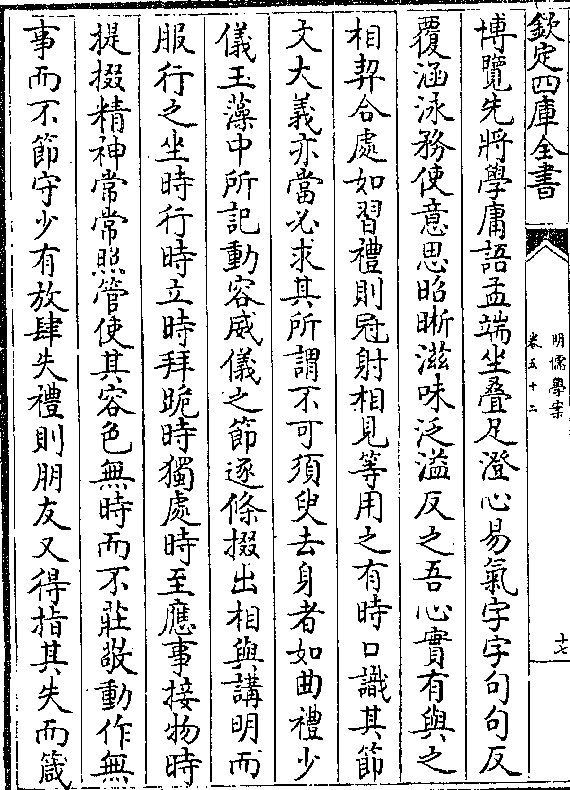 欽定四庫全書
明儒學案
卷五十二
十七
博覽先將學庸語孟端坐疊足澄心易氣字字句句反
覆涵泳務使意思昭晰滋味泛溢反之吾心實有與之
相契合處如習禮則冠射相見等用之有時口識其節
文大義亦當必求其所謂不可須臾去身者如曲禮少
儀玉藻中所記動容威儀之節逐條掇出相與講明而
服行之坐時行時立時拜跪時獨處時至應事接物時
提掇精神常常照管使其容色無時而不莊敬動作無
事而不節守少有放肆失禮則朋友又得指其失而箴